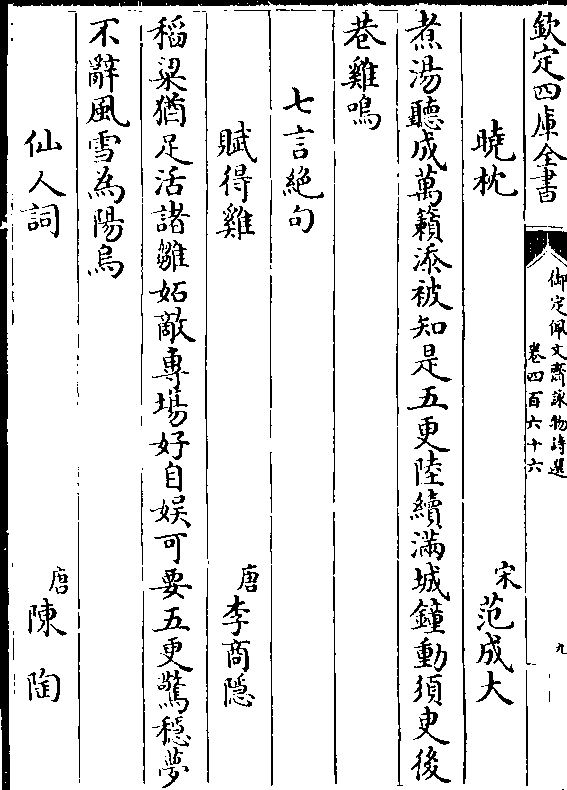 欽定四庫全書
御定佩文齋詠物詩選
卷四百六十六
九
曉枕
宋范成大
煮湯聽成萬籟添被知是五更陸續滿城鐘動須臾後
巷雞鳴
七言絕句
賦得雞
唐李商隱
稻粱猶足活諸雛妬敵專場好自娛可要五更驚穩夢
不辭風雪為陽烏
仙人詞
唐陳陶